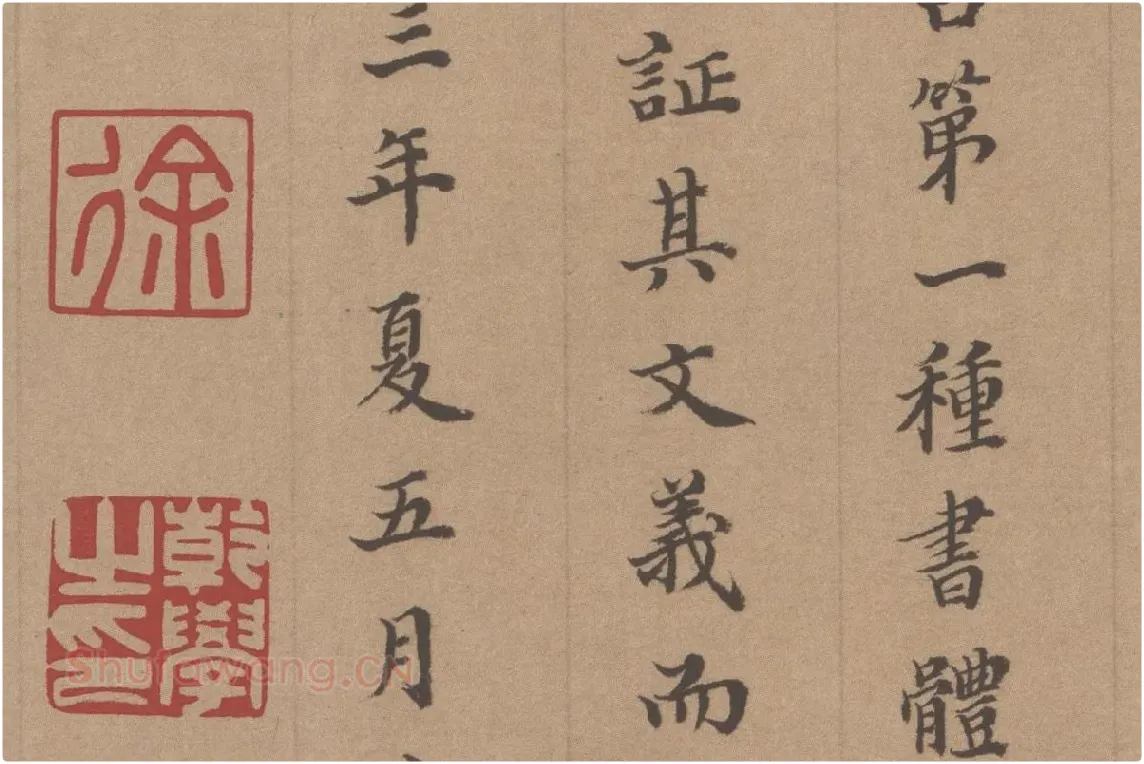 第一種書體
証其文義而
三年夏五月
徐
乾學之印
Shufawang.CN